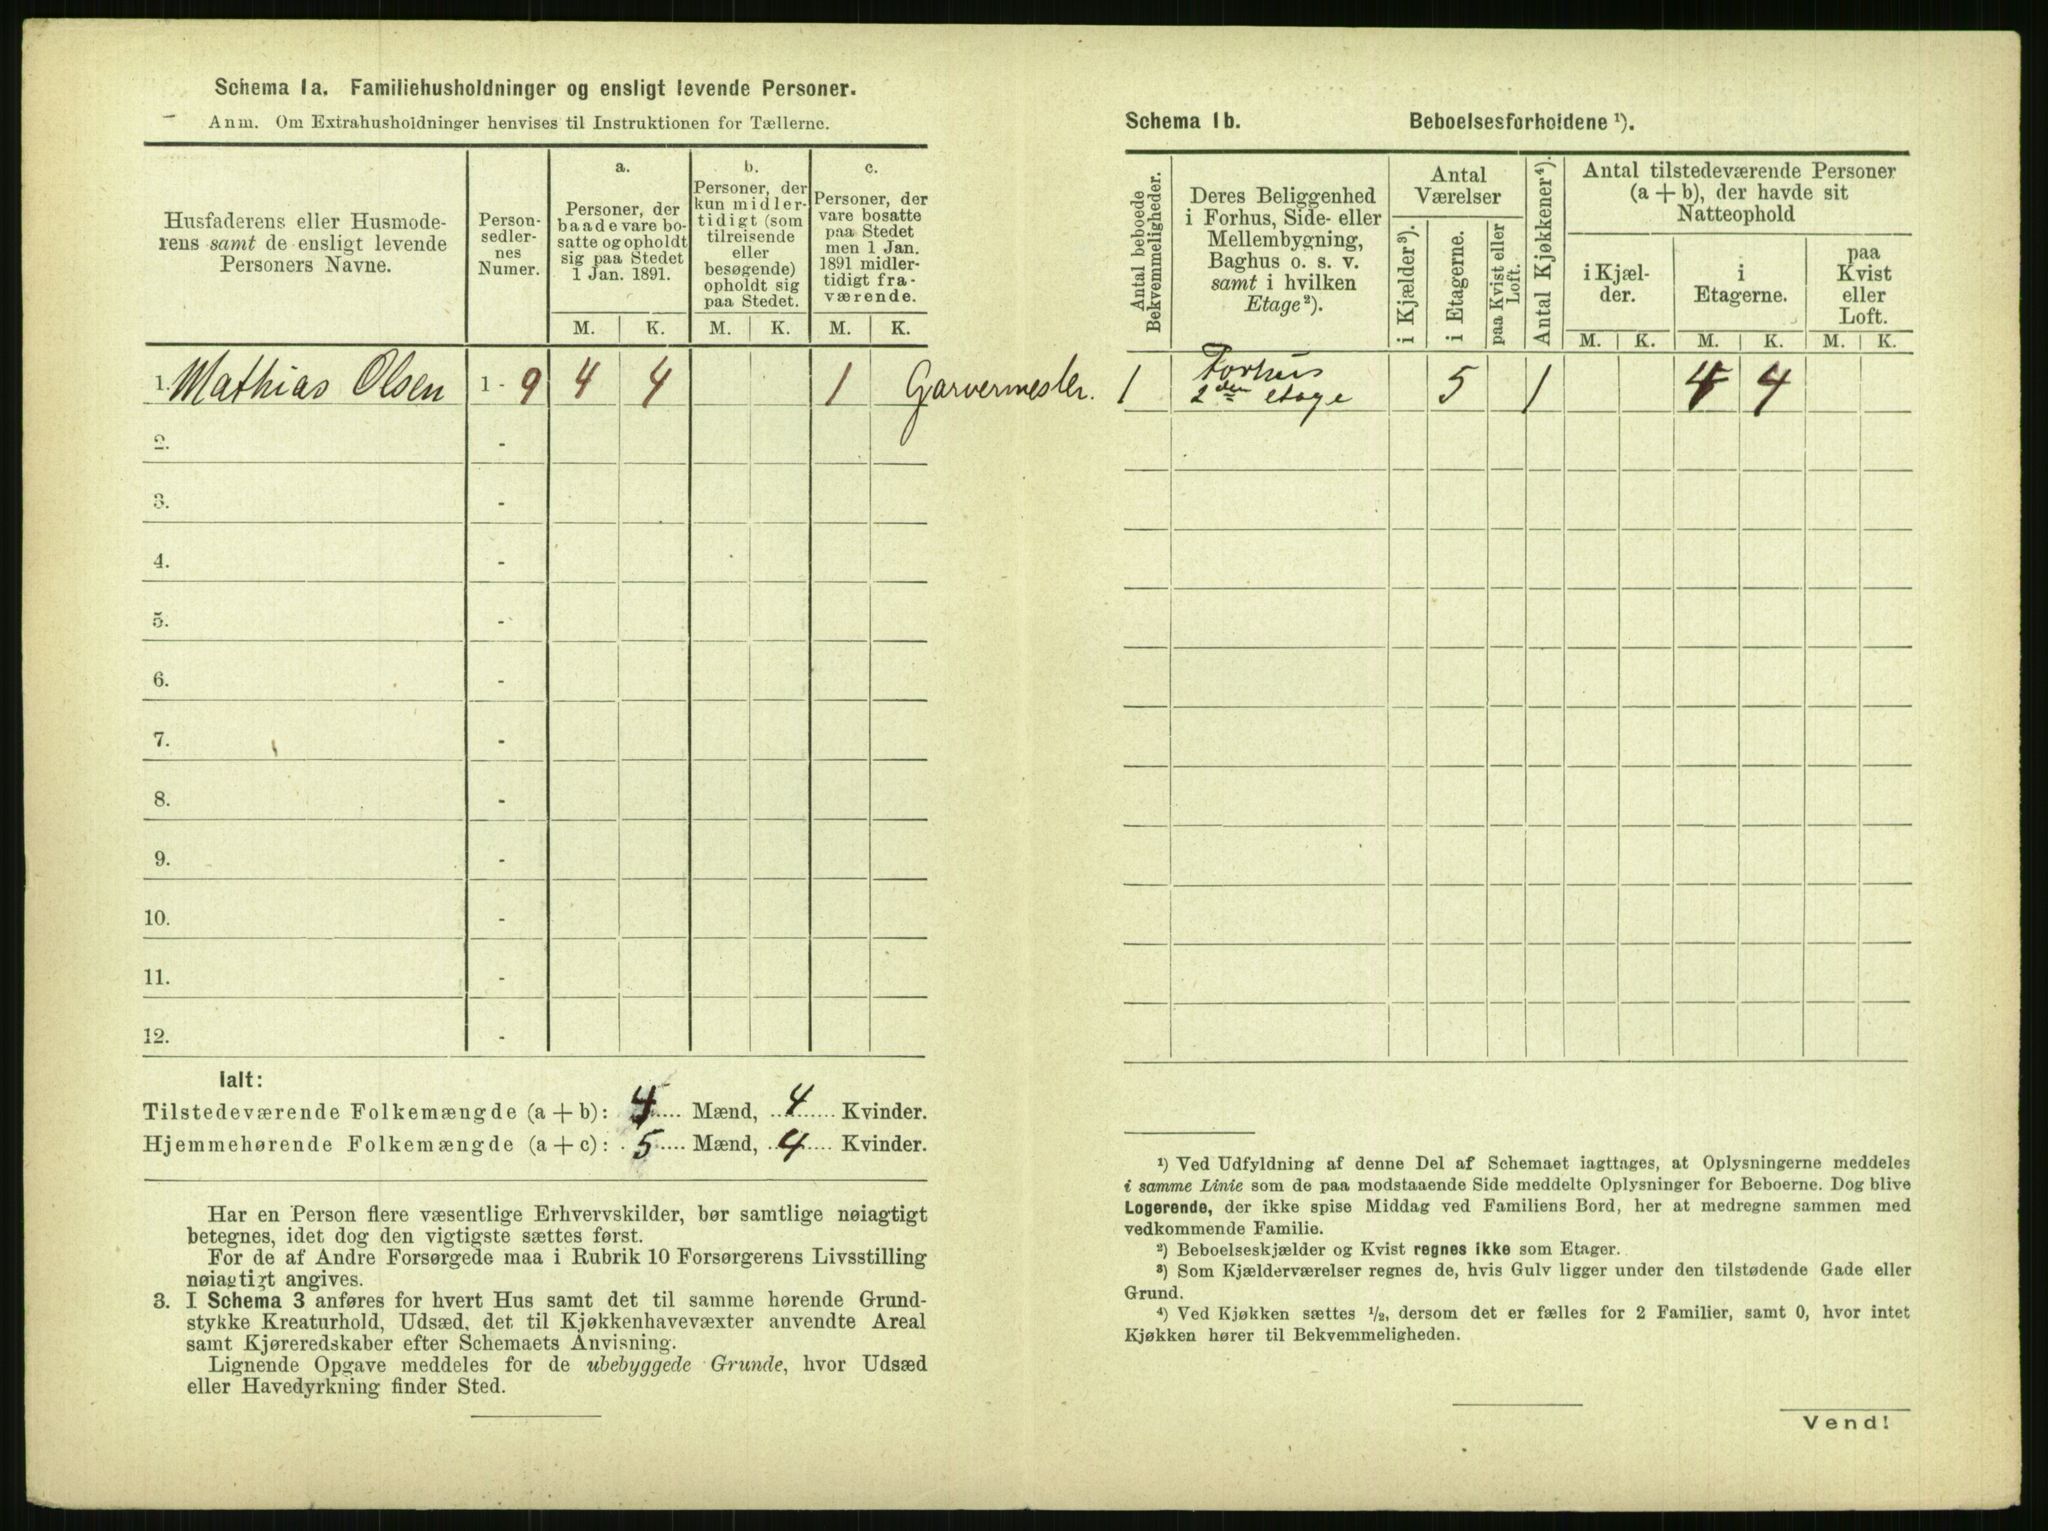 Schema 1a. Familiehusholdninger og ensligt levende Personer.
Anm. Om Extrahusholdninger henvises til Instruktionen for Tællerne.
Husfaderens eller Husmode-
rens samt de ensligt levende
Personers Navne.
Person-
sedler-
nes
Numer.
a.
Personer, der
baade vare bo-
satte og opholdt
sig paa Stedet
1 Jan. 1891.
M. K.
b.
Personer, der
kun midler-
tidigt (som
tilreisende
eller
besøgende)
opholdt sig
paa Stedet.
M. K.
c.
Personer, der
vare bosatte
paa Stedet
men 1 Jan.
1891 midler-
tidigt fra-
værende.
M. K.
1. Mathias Olsen 1 - 9 4 4 1 Garvermester.
2. -
3. -
4. -
5. -
6. -
7. -
8. -
9. -
10. -
11. -
12. -
Ialt:
Tilstedeværende Folkemængde (a + b): 4 Mænd, 4 Kvinder.
Hjemmehørende Folkemængde (a + c): 5 Mænd, 4 Kvinder.
Har en Person flere væsentlige Erhvervskilder, bør samtlige nøiagtigt
betegnes, idet dog den vigtigste sættes først.
For de af Andre Forsørgede maa i Rubrik 10 Forsørgerens Livsstilling
nøiagtigt angives.
3. I Schema 3 anføres for hvert Hus samt det til samme hørende Grund-
stykke Kreaturhold, Udsæd, det til Kjøkkenhavevæxter anvendte Areal
samt Kjøreredskaber efter Schemaets Anvisning.
Lignende Opgave meddeles for de ubebyggede Grunde, hvor Udsæd
eller Havedyrkning finder Sted.
Schema 1b. Beboelsesforholdene ¹).
Antal beboede
Bekvemmeligheder.
Deres Beliggenhed
i Forhus, Side- eller
Mellembygning,
Baghus o. s. v.
samt i hvilken
Etage²).
Antal
Værelser
i Kjælder³).
i Etagerne.
paa Kvist eller
Loft.
Antal Kjøkkener⁴).
Antal tilstedeværende Personer
(a + b), der havde sit
Natteophold
i Kjæl-
der.
M. K.
i
Etagerne.
M. K.
paa
Kvist
eller
Loft.
M. K.
1 Forhus
2den etage 5 1 4 4
¹) Ved Udfyldning af denne Del af Schemaet iagttages, at Oplysningerne meddeles
i samme Linie som de paa modstaaende Side meddelte Oplysninger for Beboerne. Dog blive
Logerende, der ikke spise Middag ved Familiens Bord, her at medregne sammen med
vedkommende Familie.
²) Beboelseskjælder og Kvist regnes ikke som Etager.
³) Som Kjælderværelser regnes de, hvis Gulv ligger under den tilstødende Gade eller
Grund.
⁴) Ved Kjøkken sættes ½, dersom det er fælles for 2 Familier, samt 0, hvor intet
Kjøkken hører til Bekvemmeligheden.
Vend!